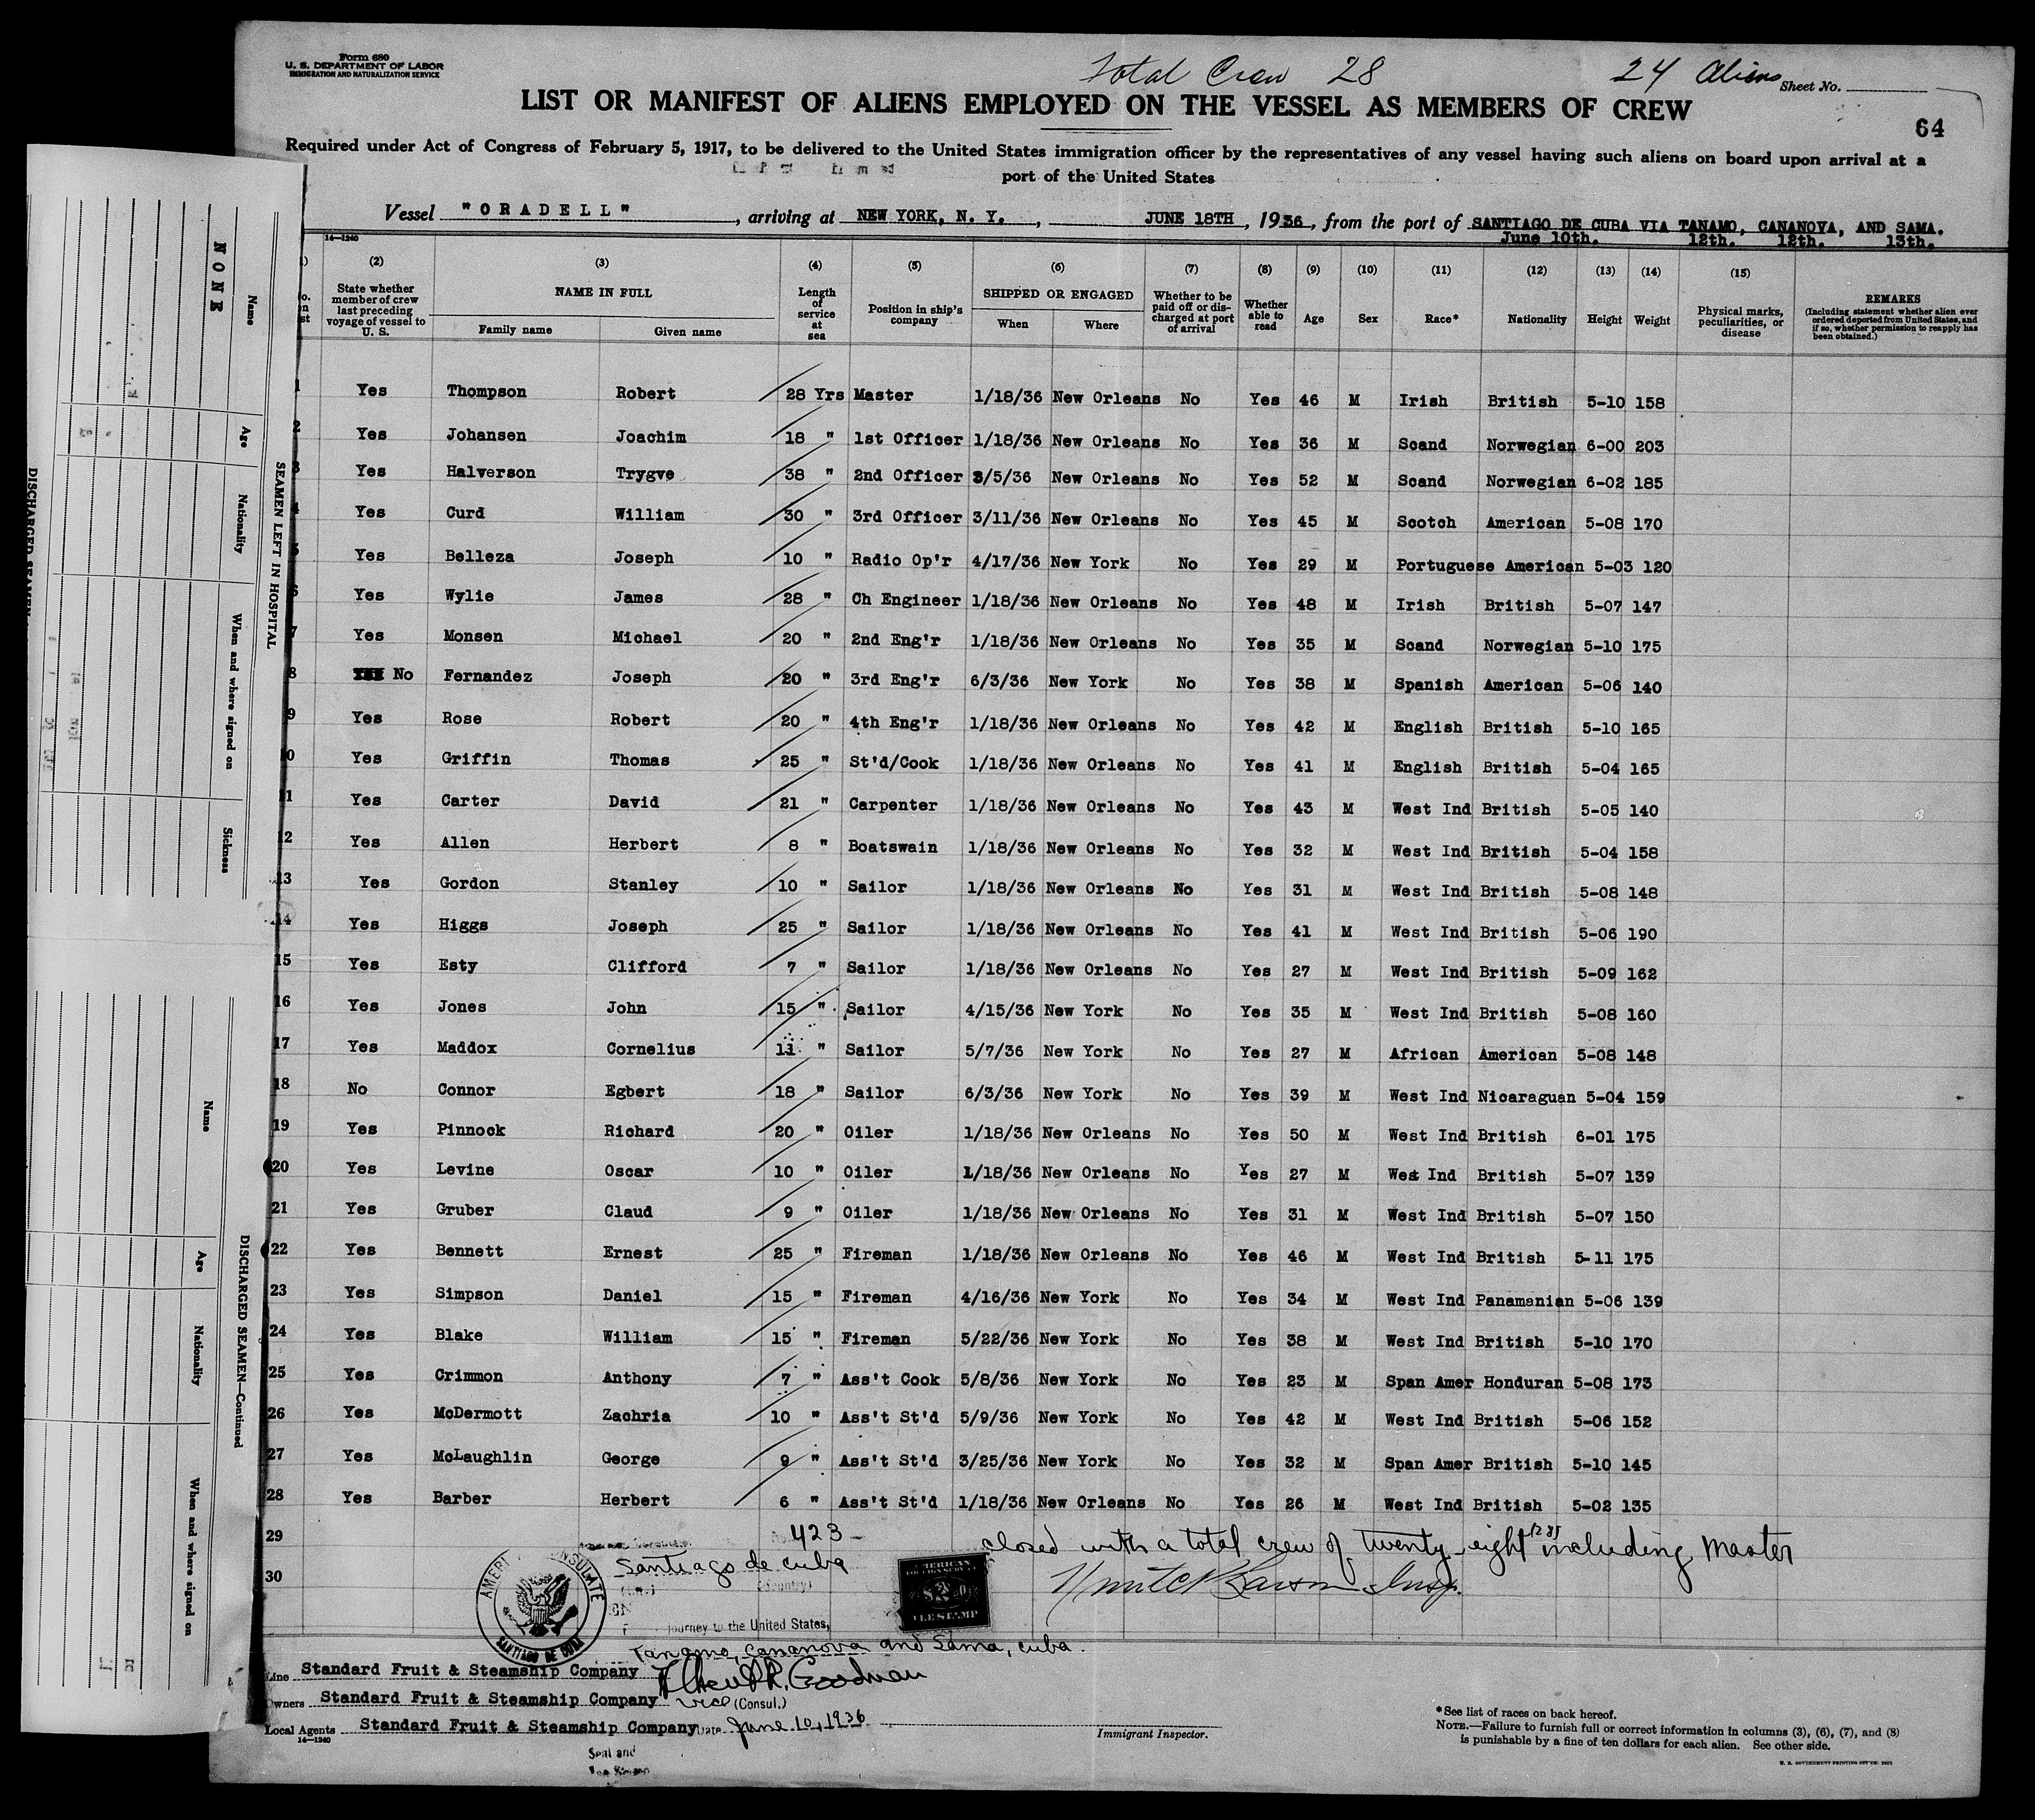 Form 680
U. S. DEPARTMENT OF LABOR
IMMIGRATION AND NATURALIZATION SERVICE
Total Crew 28
24 Aliens
Sheet No.
LIST OR MANIFEST OF ALIENS EMPLOYED ON THE VESSEL AS MEMBERS OF CREW
64
Required under Act of Congress of February 5, 1917, to be delivered to the United States immigration officer by the representatives of any vessel having such aliens on board upon arrival at a
port of the United States
Vessel "ORADELL", arriving at NEW YORK, N. Y., JUNE 18TH, 1936, from the port of SANTIAGO DE CUBA VIA TANAMO, CANANOVA, AND SAMA.
June 10th. 12th. 12th. 13th.
14—1240
(2) (3) (4) (5) (6) (7) (8) (9) (10) (11) (12) (13) (14) (15)
State whether member of crew last preceding voyage of vessel to U. S.
NAME IN FULL
Family name Given name
Length of service at sea
Position in ship's company
SHIPPED OR ENGAGED
When Where
Whether to be paid off or discharged at port of arrival
Whether able to read
Age Sex Race* Nationality Height Weight
Physical marks, peculiarities, or disease
REMARKS
(Including statement whether alien ever ordered deported from United States, and if so, whether permission to reapply has been obtained.)
1 Yes Thompson Robert 28 Yrs Master 1/18/36 New Orleans No Yes 46 M Irish British 5-10 158
2 Yes Johansen Joachim 18 " 1st Officer 1/18/36 New Orleans No Yes 36 M Scand Norwegian 6-00 203
3 Yes Halverson Trygve 38 " 2nd Officer 3/5/36 New Orleans No Yes 52 M Scand Norwegian 6-02 185
4 Yes Curd William 30 " 3rd Officer 3/11/36 New Orleans No Yes 45 M Scotch American 5-08 170
5 Yes Belleza Joseph 10 " Radio Op'r 4/17/36 New York No Yes 29 M Portuguese American 5-03 120
6 Yes Wylie James 28 " Ch Engineer 1/18/36 New Orleans No Yes 48 M Irish British 5-07 147
7 Yes Monsen Michael 20 " 2nd Eng'r 1/18/36 New Orleans No Yes 35 M Scand Norwegian 5-10 175
8 No Fernandez Joseph 20 " 3rd Eng'r 6/3/36 New York No Yes 38 M Spanish American 5-06 140
9 Yes Rose Robert 20 " 4th Eng'r 1/18/36 New Orleans No Yes 42 M English British 5-10 165
10 Yes Griffin Thomas 25 " St'd/Cook 1/18/36 New Orleans No Yes 41 M English British 5-04 165
11 Yes Carter David 21 " Carpenter 1/18/36 New Orleans No Yes 43 M West Ind British 5-05 140
12 Yes Allen Herbert 8 " Boatswain 1/18/36 New Orleans No Yes 32 M West Ind British 5-04 158
13 Yes Gordon Stanley 10 " Sailor 1/18/36 New Orleans No Yes 31 M West Ind British 5-08 148
14 Yes Higgs Joseph 25 " Sailor 1/18/36 New Orleans No Yes 41 M West Ind British 5-06 190
15 Yes Esty Clifford 7 " Sailor 1/18/36 New Orleans No Yes 27 M West Ind British 5-09 162
16 Yes Jones John 15 " Sailor 4/15/36 New York No Yes 35 M West Ind British 5-08 160
17 Yes Maddox Cornelius 11 " Sailor 5/7/36 New York No Yes 27 M African American 5-08 148
18 No Connor Egbert 18 " Sailor 6/3/36 New York No Yes 39 M West Ind Nicaraguan 5-04 159
19 Yes Pinnock Richard 20 " Oiler 1/18/36 New Orleans No Yes 50 M West Ind British 6-01 175
20 Yes Levine Oscar 10 " Oiler 1/18/36 New Orleans No Yes 27 M West Ind British 5-07 139
21 Yes Gruber Claud 9 " Oiler 1/18/36 New Orleans No Yes 31 M West Ind British 5-07 150
22 Yes Bennett Ernest 25 " Fireman 1/18/36 New Orleans No Yes 46 M West Ind British 5-11 175
23 Yes Simpson Daniel 15 " Fireman 4/16/36 New York No Yes 34 M West Ind Panamanian 5-06 139
24 Yes Blake William 15 " Fireman 5/22/36 New York No Yes 38 M West Ind British 5-10 170
25 Yes Crimmon Anthony 7 " Ass't Cook 5/8/36 New York No Yes 23 M Span Amer Honduran 5-08 173
26 Yes McDermott Zachria 10 " Ass't St'd 5/9/36 New York No Yes 42 M West Ind British 5-06 152
27 Yes McLaughlin George 9 " Ass't St'd 3/25/36 New York No Yes 32 M Span Amer British 5-10 145
28 Yes Barber Herbert 6 " Ass't St'd 1/18/36 New Orleans No Yes 26 M West Ind British 5-02 135
29
423 -
closed with a total crew of twenty-eight (28) including Master
30
Santiago de Cuba
(Country)
AMERICAN CONSULATE
SANTIAGO DE CUBA
AMERICAN
FOREIGN SERVICE
FEE STAMP
journey to the United States,
Tanamo, Cananova and Sama, Cuba.
Line Standard Fruit & Steamship Company
Goodman
Owners Standard Fruit & Steamship Company
Vice (Consul.)
Local Agents Standard Fruit & Steamship Company
Date June 10, 1936
14—1240
Immigrant Inspector.
Seal and
*See list of races on back hereof.
NOTE.—Failure to furnish full or correct information in columns (3), (6), (7), and (8)
is punishable by a fine of ten dollars for each alien. See other side.
U. S. GOVERNMENT PRINTING OFFICE
NONE
Name
Age
Nationality
When and where signed on
Sickness
SEAMEN LEFT IN HOSPITAL
DISCHARGED SEAMEN
Name
Age
Nationality
When and where signed on
DISCHARGED SEAMEN—Continued